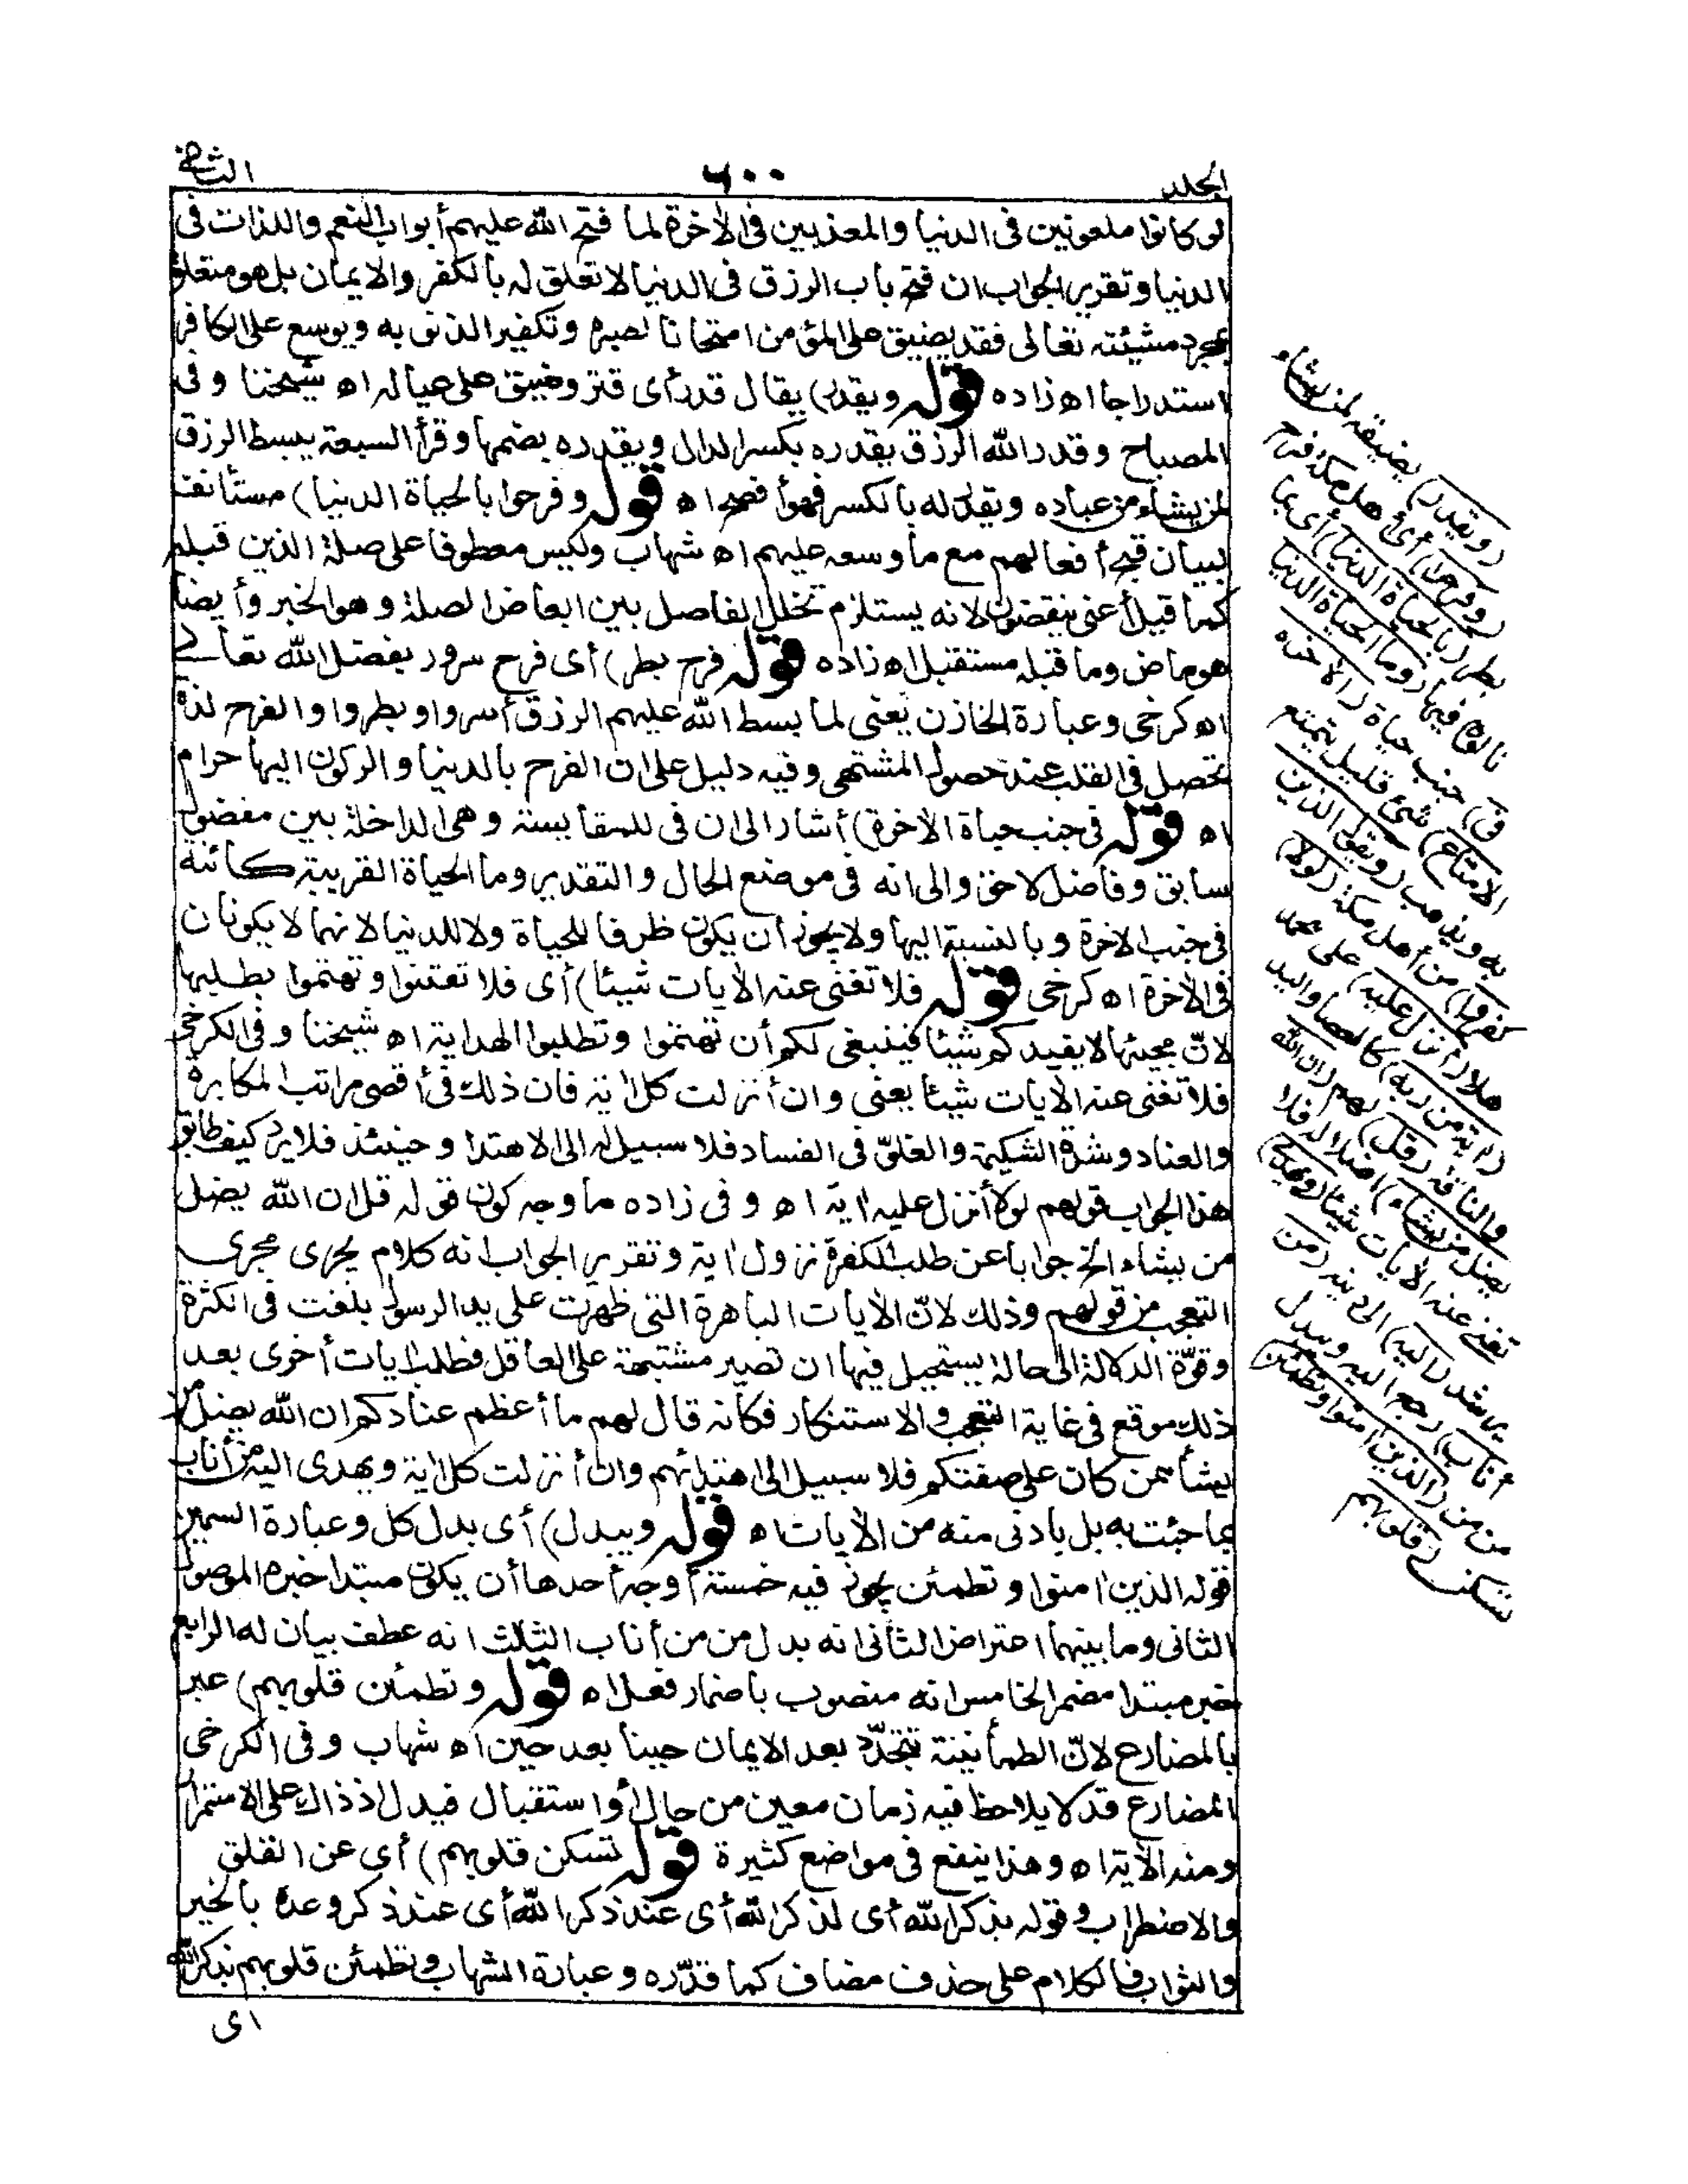 الجلد
٦٠٠
الثانى
لو كانوا ملعونين فى الدنيا والمعذبين فى الاٰخرة لما فتح الله عليهم أبواب النعم واللذات فى
الدنيا وتقرير الجواب ان فتح باب الرزق فى الدنيا لا تعلق له بالكفر والايمان بل هو متعلق
بمجرد مشيئته تعالى فقد يضيق على المؤمن امتحانا لصبره وتكفيرا لذنوبه ويوسع على الكافر
استدراجا اه زاده قوله ويقدر) يقال قدر أى قتر وضيق على عياله اه شيخنا وفى
المصباح وقدر الله الرزق يقدره بكسر الدال ويقدره بضمها وقرأ السبعة يبسط الرزق
لمن يشاء من عباده ويقدر له بالكسر فهو أفصح اه قوله وفرحوا بالحياة الدنيا) مستأنف
لبيان قبح أفعالهم مع ما وسعه عليهم اه شهاب وليس معطوفا على صلة الذين قبله
كما قيل أعنى ينقضون لانه يستلزم تخلل الفاصل بين ابعاض الصلة وهو الخبر وأيضا
هو ماض وما قبله مستقبل اه زاده قوله فرح بطر) أى فرح سرور بفضل الله تعالى
اه كرخى وعبارة الخازن يعنى لما بسط الله عليهم الرزق أسروا وبطروا والفرح لذة
تحصل فى القلب عند حصول المشتهى وفيه دليل على ان الفرح بالدنيا والركون اليها حرام
اه قوله فى جنب حياة الاخرة) أشار الى ان فى للمقايسة وهى الداخلة بين مفضول
سابق وفاضل لاحق والى انه فى موضع الحال والتقدير وما الحياة القريبة كائنة
فى جنب الاخرة وبالنسبة اليها ولا يجوز أن يكون ظرفا للحياة ولا للدنيا لانهما لا يكونان
فى الاٰخرة اه كرخى قوله فلا تغنى عنه الاٰيات شيئا) أى فلا تفتنوا وتهتموا بطلبها
لانّ مجيئها لا يفيدكم شيئا فينبغى لكم أن تهتموا وتطلبوا الهداية اه شيخنا وفى الكرخى
فلا تغنى عنه الاٰيات شيئا يعنى وان أنزلت كل اٰية فان ذلك فى أقصى مراتب المكابرة
والعناد وشدة الشكيمة والغلوّ فى الفساد فلا سبيل له الى الاهتدا وحينئذ فلا يرد كيف طابق
هذا الجواب قولهم لولا أنزل عليه اٰية اه وفى زاده ما وجه كون قوله قل ان الله يضل
من يشاء الخ جوابا عن طلب الكفرة نزول اٰية وتقرير الجواب انه كلام يجرى مجرى
التعجب من قولهم وذلك لانّ الاٰيات الباهرة التى ظهرت على يد الرسول بلغت فى الكثرة
وقوّة الدلالة الى حالة يستحيل فيها ان تصير مشتبهة على العاقل فطلب اٰيات أخرى بعد
ذلك موقع فى غاية التعجب والاستنكار فكأنه قال لهم ما أعظم عنادكم ان الله يضل من
يشأ ممن كان على صفتكم فلا سبيل الى اهتدائهم وان أنزلت كل اٰية ويهدى اليه من أناب
بما جئت به بل بادنى منه من الاٰيات اه قوله ويبدل) أى بدل كل وعبارة السمين
قوله الذين اٰمنوا وتطمئن يجوز فيه خمسة أوجه أحدها أن يكون مبتدا خبره الموصول
الثانى وما بينهما اعتراض الثانى انه بدل من من أناب الثالث انه عطف بيان له الرابع
خبر مبتدا مضمر الخامس انه منصوب باضمار فعل اه قوله وتطمئن قلوبهم) عبر
بالمضارع لانّ الطمأنينة تتجدّد بعد الايمان حينا بعد حين اه شهاب وفى الكرخى
المضارع قد لا يلاحظ فيه زمان معين من حال أو استقبال فيدل اذ ذاك على الاستمرار
ومنه الاٰية اه وهذا ينفع فى مواضع كثيرة قوله تسكن قلوبهم) أى عن القلق
والاضطراب وقوله بذكر الله أى لذكر الله أى عند ذكر الله أى عند ذكر وعده بالخير
والثواب فالكلام على حذف مضاف كما قدّره وعبارة الشهاب وتطمئن قلوبهم بذكر الله
اى
(ويقدر) يضيقه لمن يشاء
(وفرحوا) أى أهل مكة فرح
بطر (بالحياة الدنيا) أى بما
نالوه فيها (وما الحياة الدنيا
فى) جنب حياة (الاخرة
الامتاع) شئ قليل يتمتع
به ويذهب (ويقول الذين
كفروا) من أهل مكة (لولا)
هلا (أنزل عليه) على محمد
(اٰية من ربه) كالعصا واليد
والناقة (قل) لهم (ان الله
يضل من يشاء) اضلاله فلا
تغنى عنه الاٰيات شيئا (ويهدى)
يرشد (اليه) الى دينه (من
أناب) رجع اليه ويبدل
من من (الذين اٰمنوا وتطمئن)
تسكن (قلوبهم